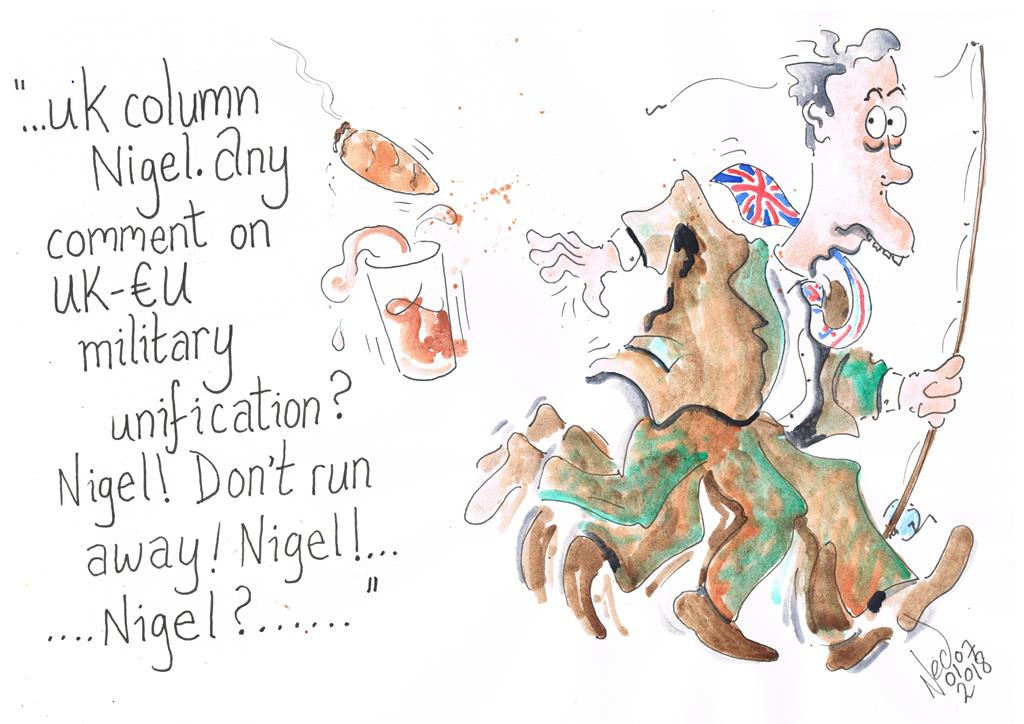 "...uk column
Nigel. any
comment on
UK-€U
military
unification?
Nigel! Don't run
away! Nigel!...
....Nigel?......"
2018